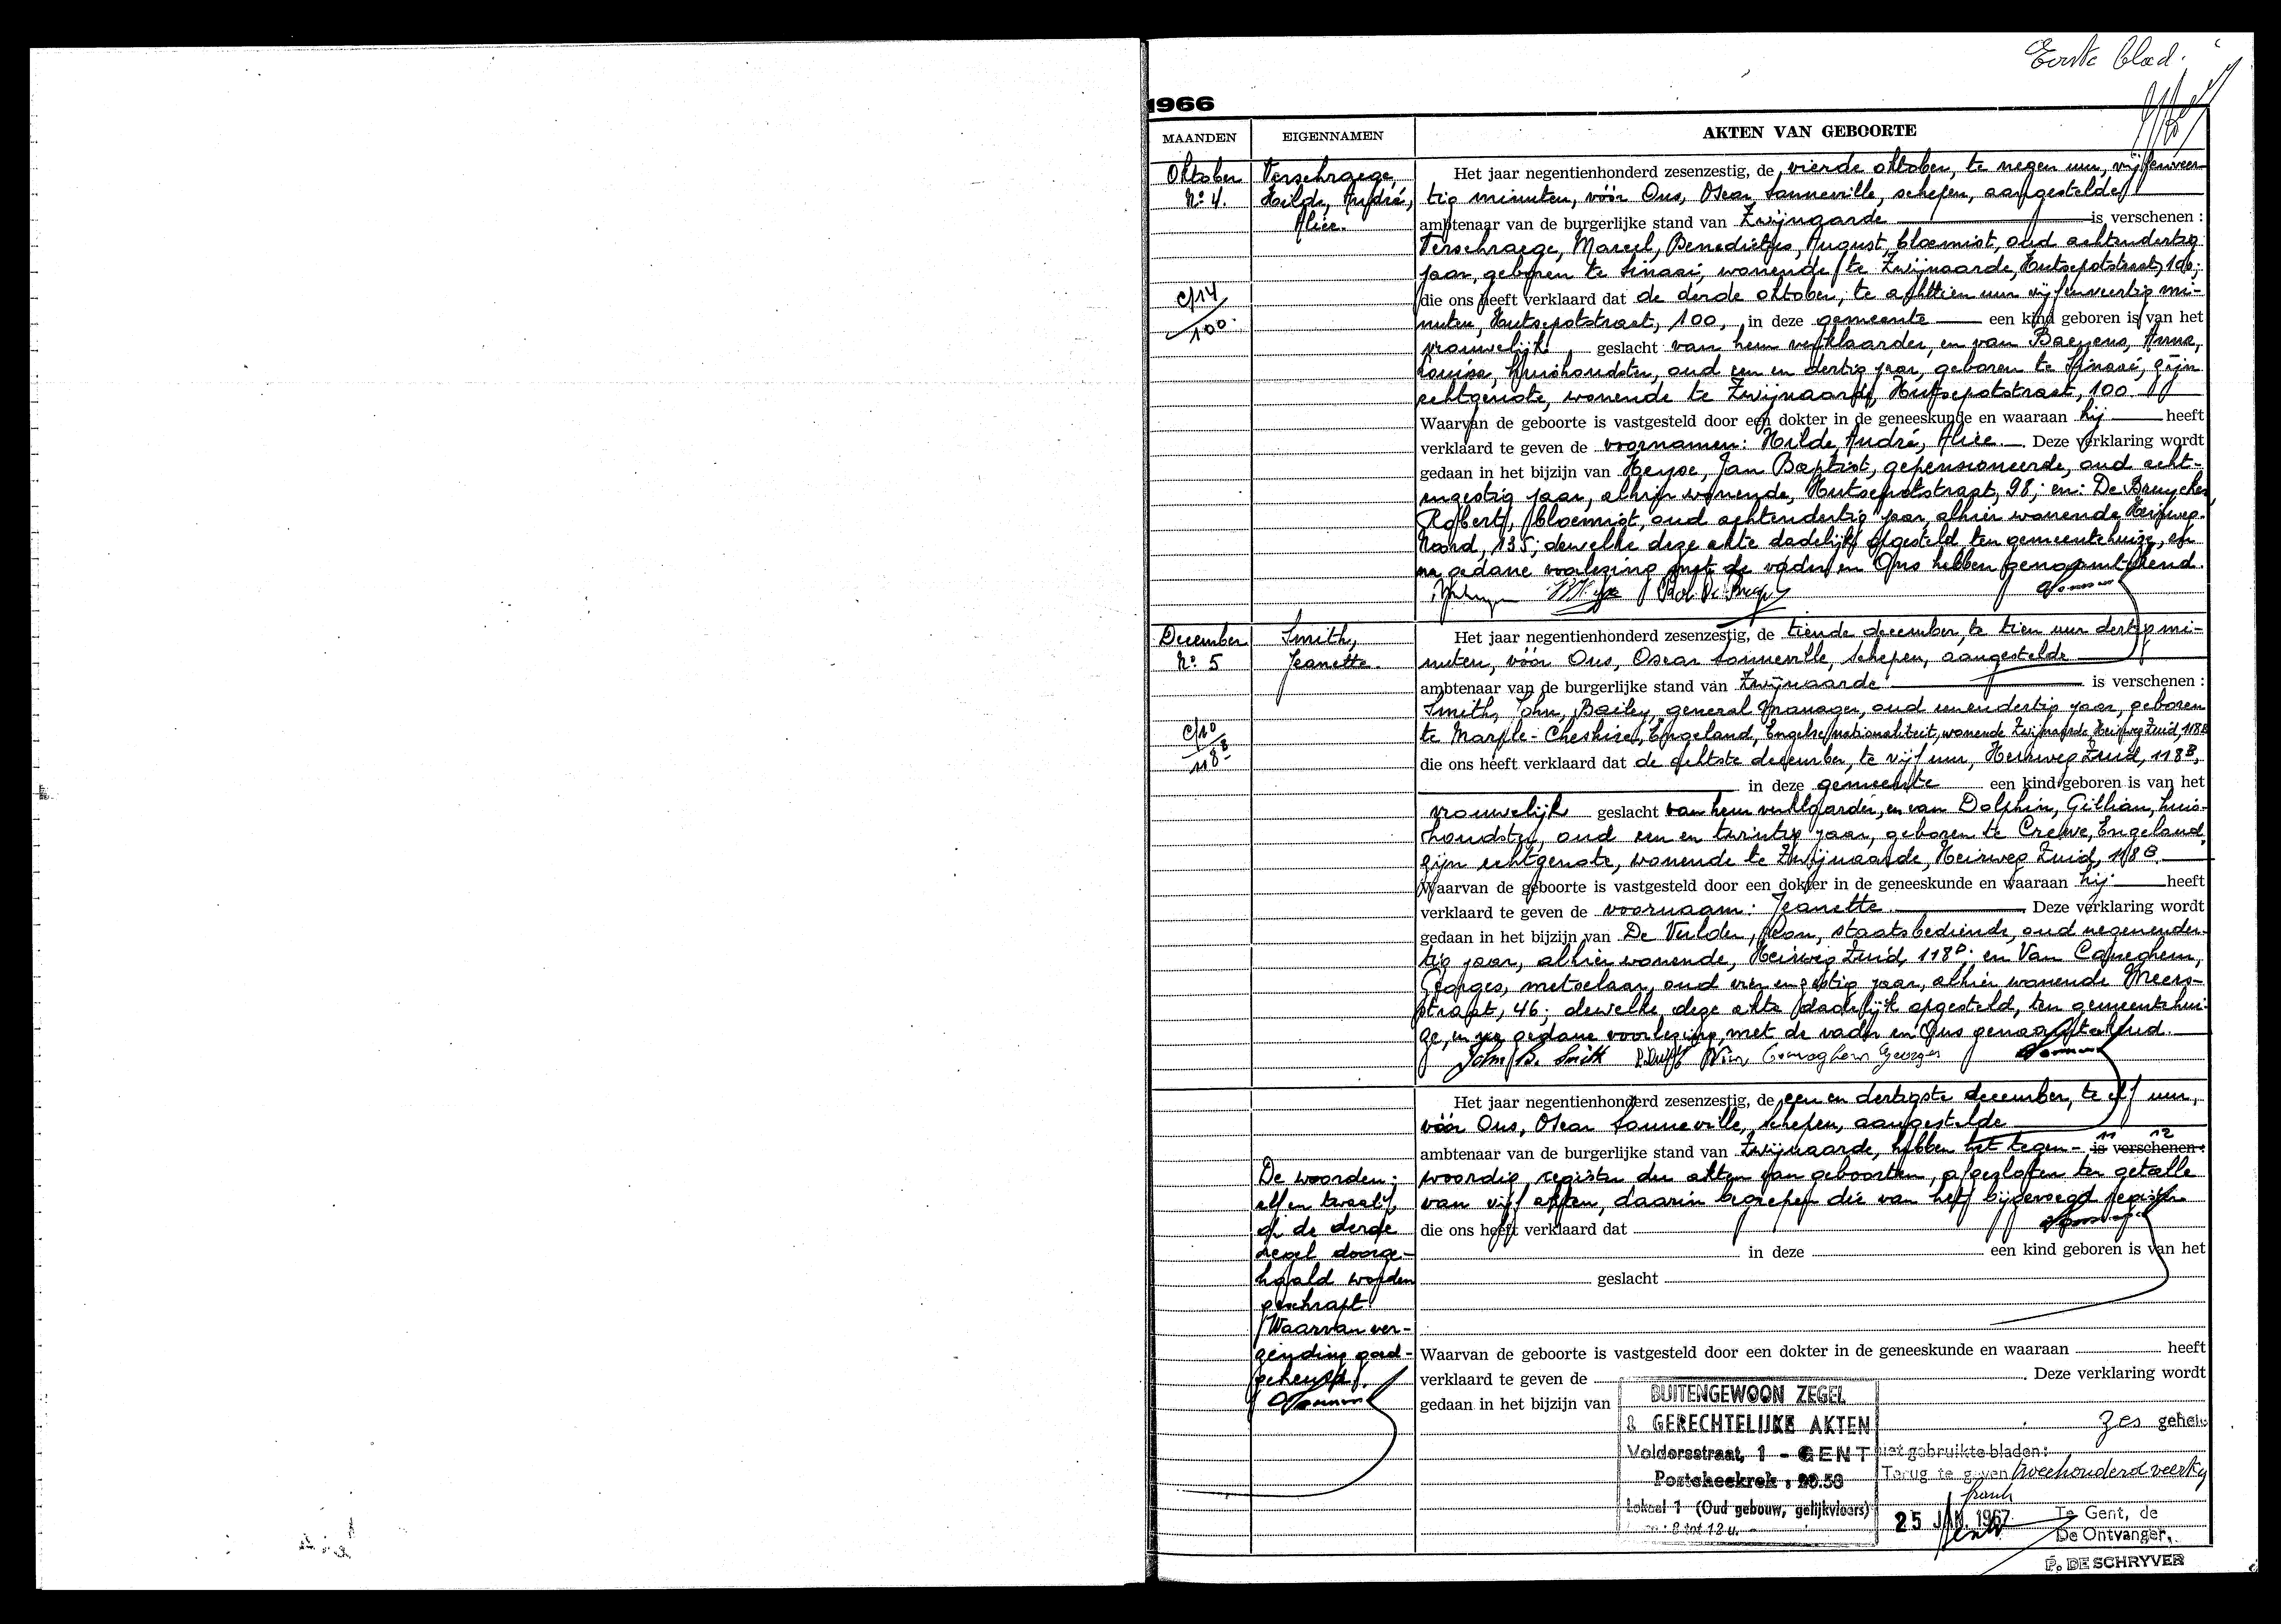 Eerste blad.
1966
MAANDEN
EIGENNAMEN
AKTEN VAN GEBOORTE
Oktober
N° 4.
Verschraege,
Hilde, André,
Alice.
c/14
100
Het jaar negentienhonderd zesenzestig, de vierde oktober, te negen uur, vijfenveer-
tig minuten, vóór Ons, Oscar Sonneville, schepen, aangestelde
ambtenaar van de burgerlijke stand van Zwijnaarde is verschenen :
Verschraege, Marcel, Benedictus, August, bloemist, oud achtendertig
jaar, geboren te Sinaai, wonende te Zwijnaarde, Hutsepotstraat, 100;
die ons heeft verklaard dat de derde oktober, te achttien uur vijfenveertig mi-
nuten, Hutsepotstraat, 100, in deze gemeente een kind geboren is van het
vrouwelijk geslacht van hem verklaarder, en van Baeyens, Anna,
Louisa, huishoudster, oud een en dertig jaar, geboren te Sinaai, zijn
echtgenote, wonende te Zwijnaarde, Hutsepotstraat, 100.
Waarvan de geboorte is vastgesteld door een dokter in de geneeskunde en waaraan hij heeft
verklaard te geven de voornamen: Hilde, André, Alice. Deze verklaring wordt
gedaan in het bijzijn van Heyse, Jan Baptist, gepensioneerde, oud acht-
enzestig jaar, alhier wonende, Hutsepotstraat, 98; en: De Bruycker,
Robert, bloemist, oud achtendertig jaar, alhier wonende Heirweg-
Noord, 135; dewelke deze akte dadelijk opgesteld ten gemeentehuize, en
na gedane voorlezing met de vader en Ons hebben genaamtekend.
December
N° 5
Smith,
Jeanette.
c/10
118B
Het jaar negentienhonderd zesenzestig, de tiende december, te tien uur dertig mi-
nuten, vóór Ons, Oscar Sonneville, schepen, aangestelde
ambtenaar van de burgerlijke stand van Zwijnaarde is verschenen :
Smith, John, Bailey, general manager, oud eenendertig jaar, geboren
te Marple-Cheshire, Engeland, Engelse nationaliteit, wonende Zwijnaarde, Heirweg Zuid, 118B
die ons heeft verklaard dat de achtste december, te vijf uur, Heirweg Zuid, 118B,
in deze gemeente een kind geboren is van het
vrouwelijk geslacht van hem verklaarder, en van Dolphin, Gillian, huis-
houdster, oud een en twintig jaar, geboren te Crewe, Engeland,
zijn echtgenote, wonende te Zwijnaarde, Heirweg Zuid, 118B.
Waarvan de geboorte is vastgesteld door een dokter in de geneeskunde en waaraan hij heeft
verklaard te geven de voornaam: Jeanette. Deze verklaring wordt
gedaan in het bijzijn van De Vulder, staatsbediende, oud negenender-
tig jaar, alhier wonende, Heirweg Zuid, 118D; en Van Caneghem,
Georges, metselaar, oud jaar, alhier wonende Meers-
straat, 46; dewelke deze akte dadelijk opgesteld, ten gemeentehui-
ze, en na gedane voorlezing, met de vader en Ons genaamtekend.
John B. Smith Van Caneghem Georges
Het jaar negentienhonderd zesenzestig, de een en dertigste december, te elf uur,
vóór Ons, Oscar Sonneville, schepen, aangestelde
11 12
ambtenaar van de burgerlijke stand van Zwijnaarde, hebben het tegen- is verschenen :
woordig register der akten van geboorten, afgesloten ten getalle
van vijf akten, daarin begrepen die van het bijgevoegd register.
die ons heeft verklaard dat
in deze een kind geboren is van het
geslacht
Waarvan de geboorte is vastgesteld door een dokter in de geneeskunde en waaraan heeft
verklaard te geven de . Deze verklaring wordt
gedaan in het bijzijn van
De woorden:
elf en twaalf,
op de derde
regel doorge-
haald worden
geschrapt.
Waarvan ver-
zending goed-
gekeurd.
BUITENGEWOON ZEGEL
& GERECHTELIJKE AKTEN
Voldersstraat, 1 - GENT
Postcheckrek : 20.50
Lokaal 1 (Oud gebouw, gelijkvloers)
8 tot 12 u.
zes geheel
niet gebruikte bladen:
Terug te geven tweehonderd veertig
frank
25 JAN. 1967
Te Gent, de
De Ontvanger,
P. DE SCHRYVER